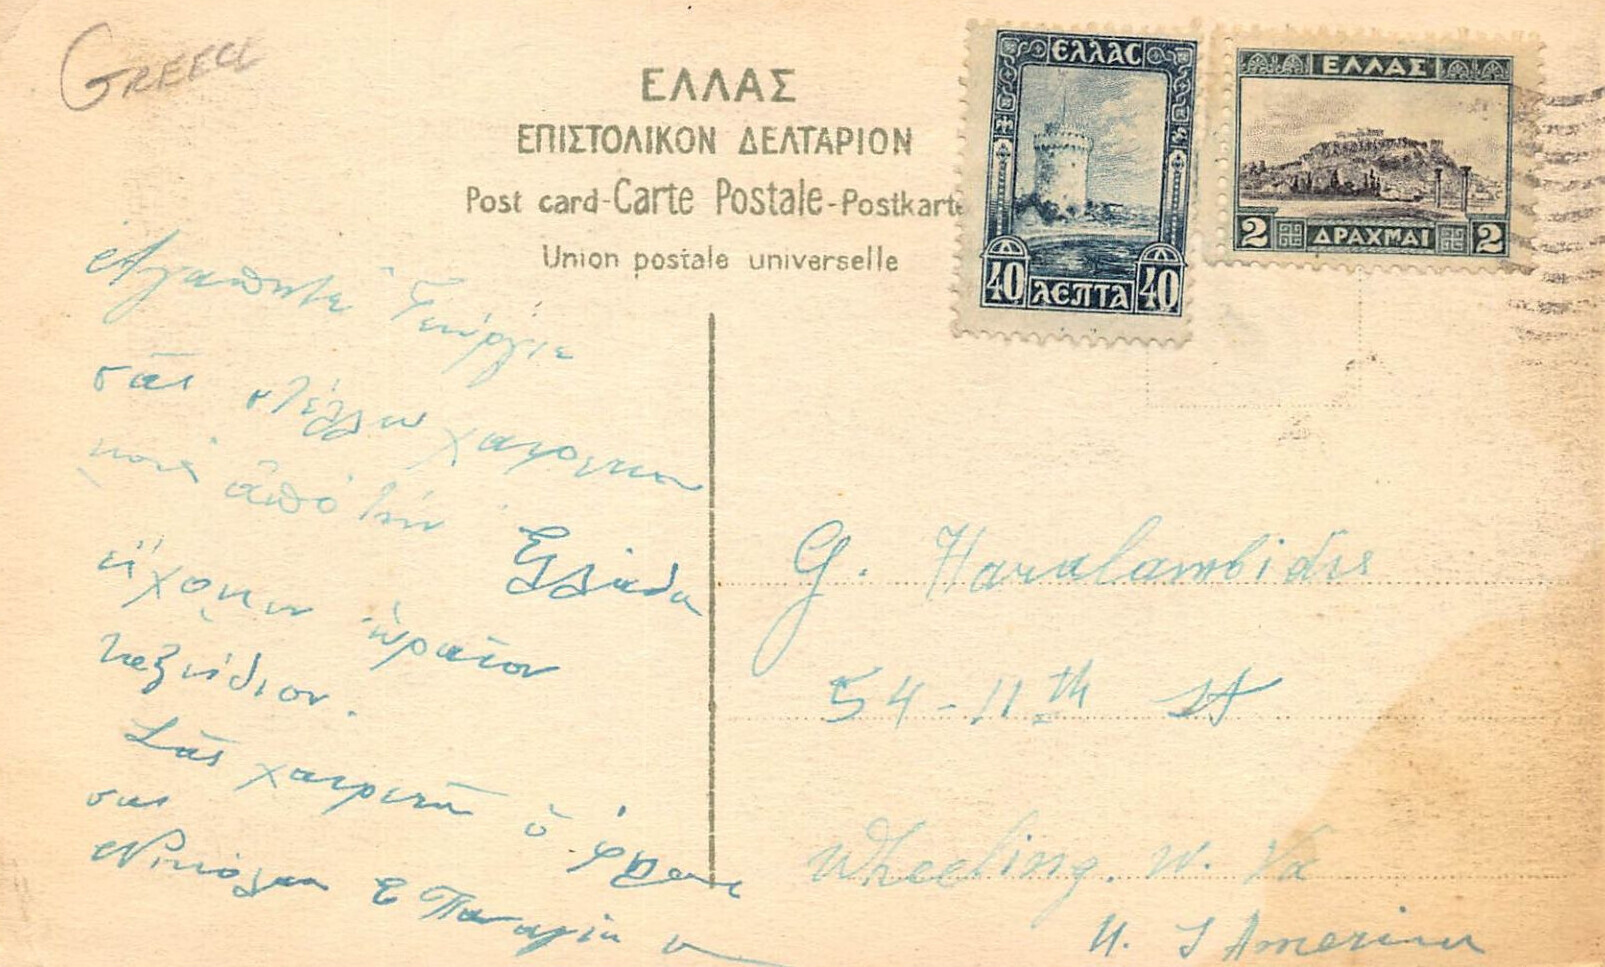 GREECE
ΕΛΛΑΣ
ΕΠΙΣΤΟΛΙΚΟΝ ΔΕΛΤΑΡΙΟΝ
Post card-Carte Postale-Postkarte
Union postale universelle
ΕΛΛΑΣ
40 ΛΕΠΤΑ 40
ΕΛΛΑΣ
2 ΔΡΑΧΜΑΙ 2
Ἀγαπητὲ Γεώργιε
σᾶς στέλλω χαιρετισ
ἀπὸ τὴν Ἑλλάδα
εἴχομεν ὡραῖον
ταξείδιον.
Σᾶς χαιρετῶ ὁ φίλος
σας
Νικόλαος
G. Haralambides
54-11th St
Wheeling. W. Va
U. S America